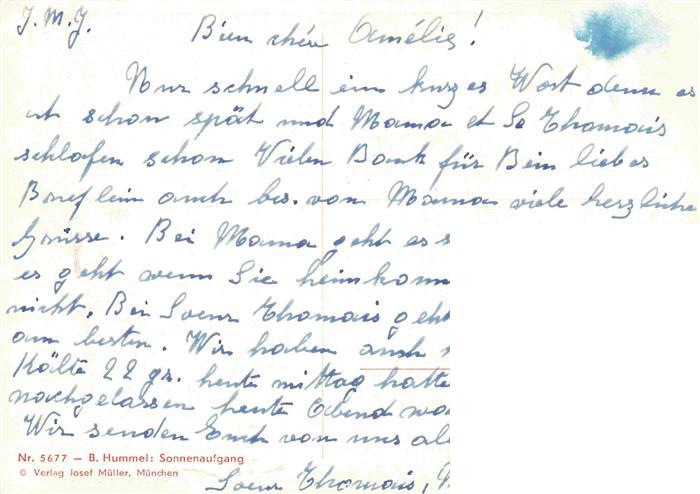 J.M.J. Bien chère Amélie!
Nur schnell ein kurzes Wort denn es
ist schon spät und Mama et Sr Thomais
schlafen schon Vielen Dank für Dein liebes
Brieflein auch bes. von Mama viele herzliche
Grüsse. Bei Mama geht es s
es geht wenn Sie heimkom
nicht. Bei Soeur Thomais geht
am besten. Wir haben auch
Kälte 22 gr. heute mittag hatte
nachgelassen heute Abend wa
Wir senden Euch von uns al
Nr. 5677 — B. Hummel: Sonnenaufgang
© Verlag Josef Müller, München
Soeur Thomais,